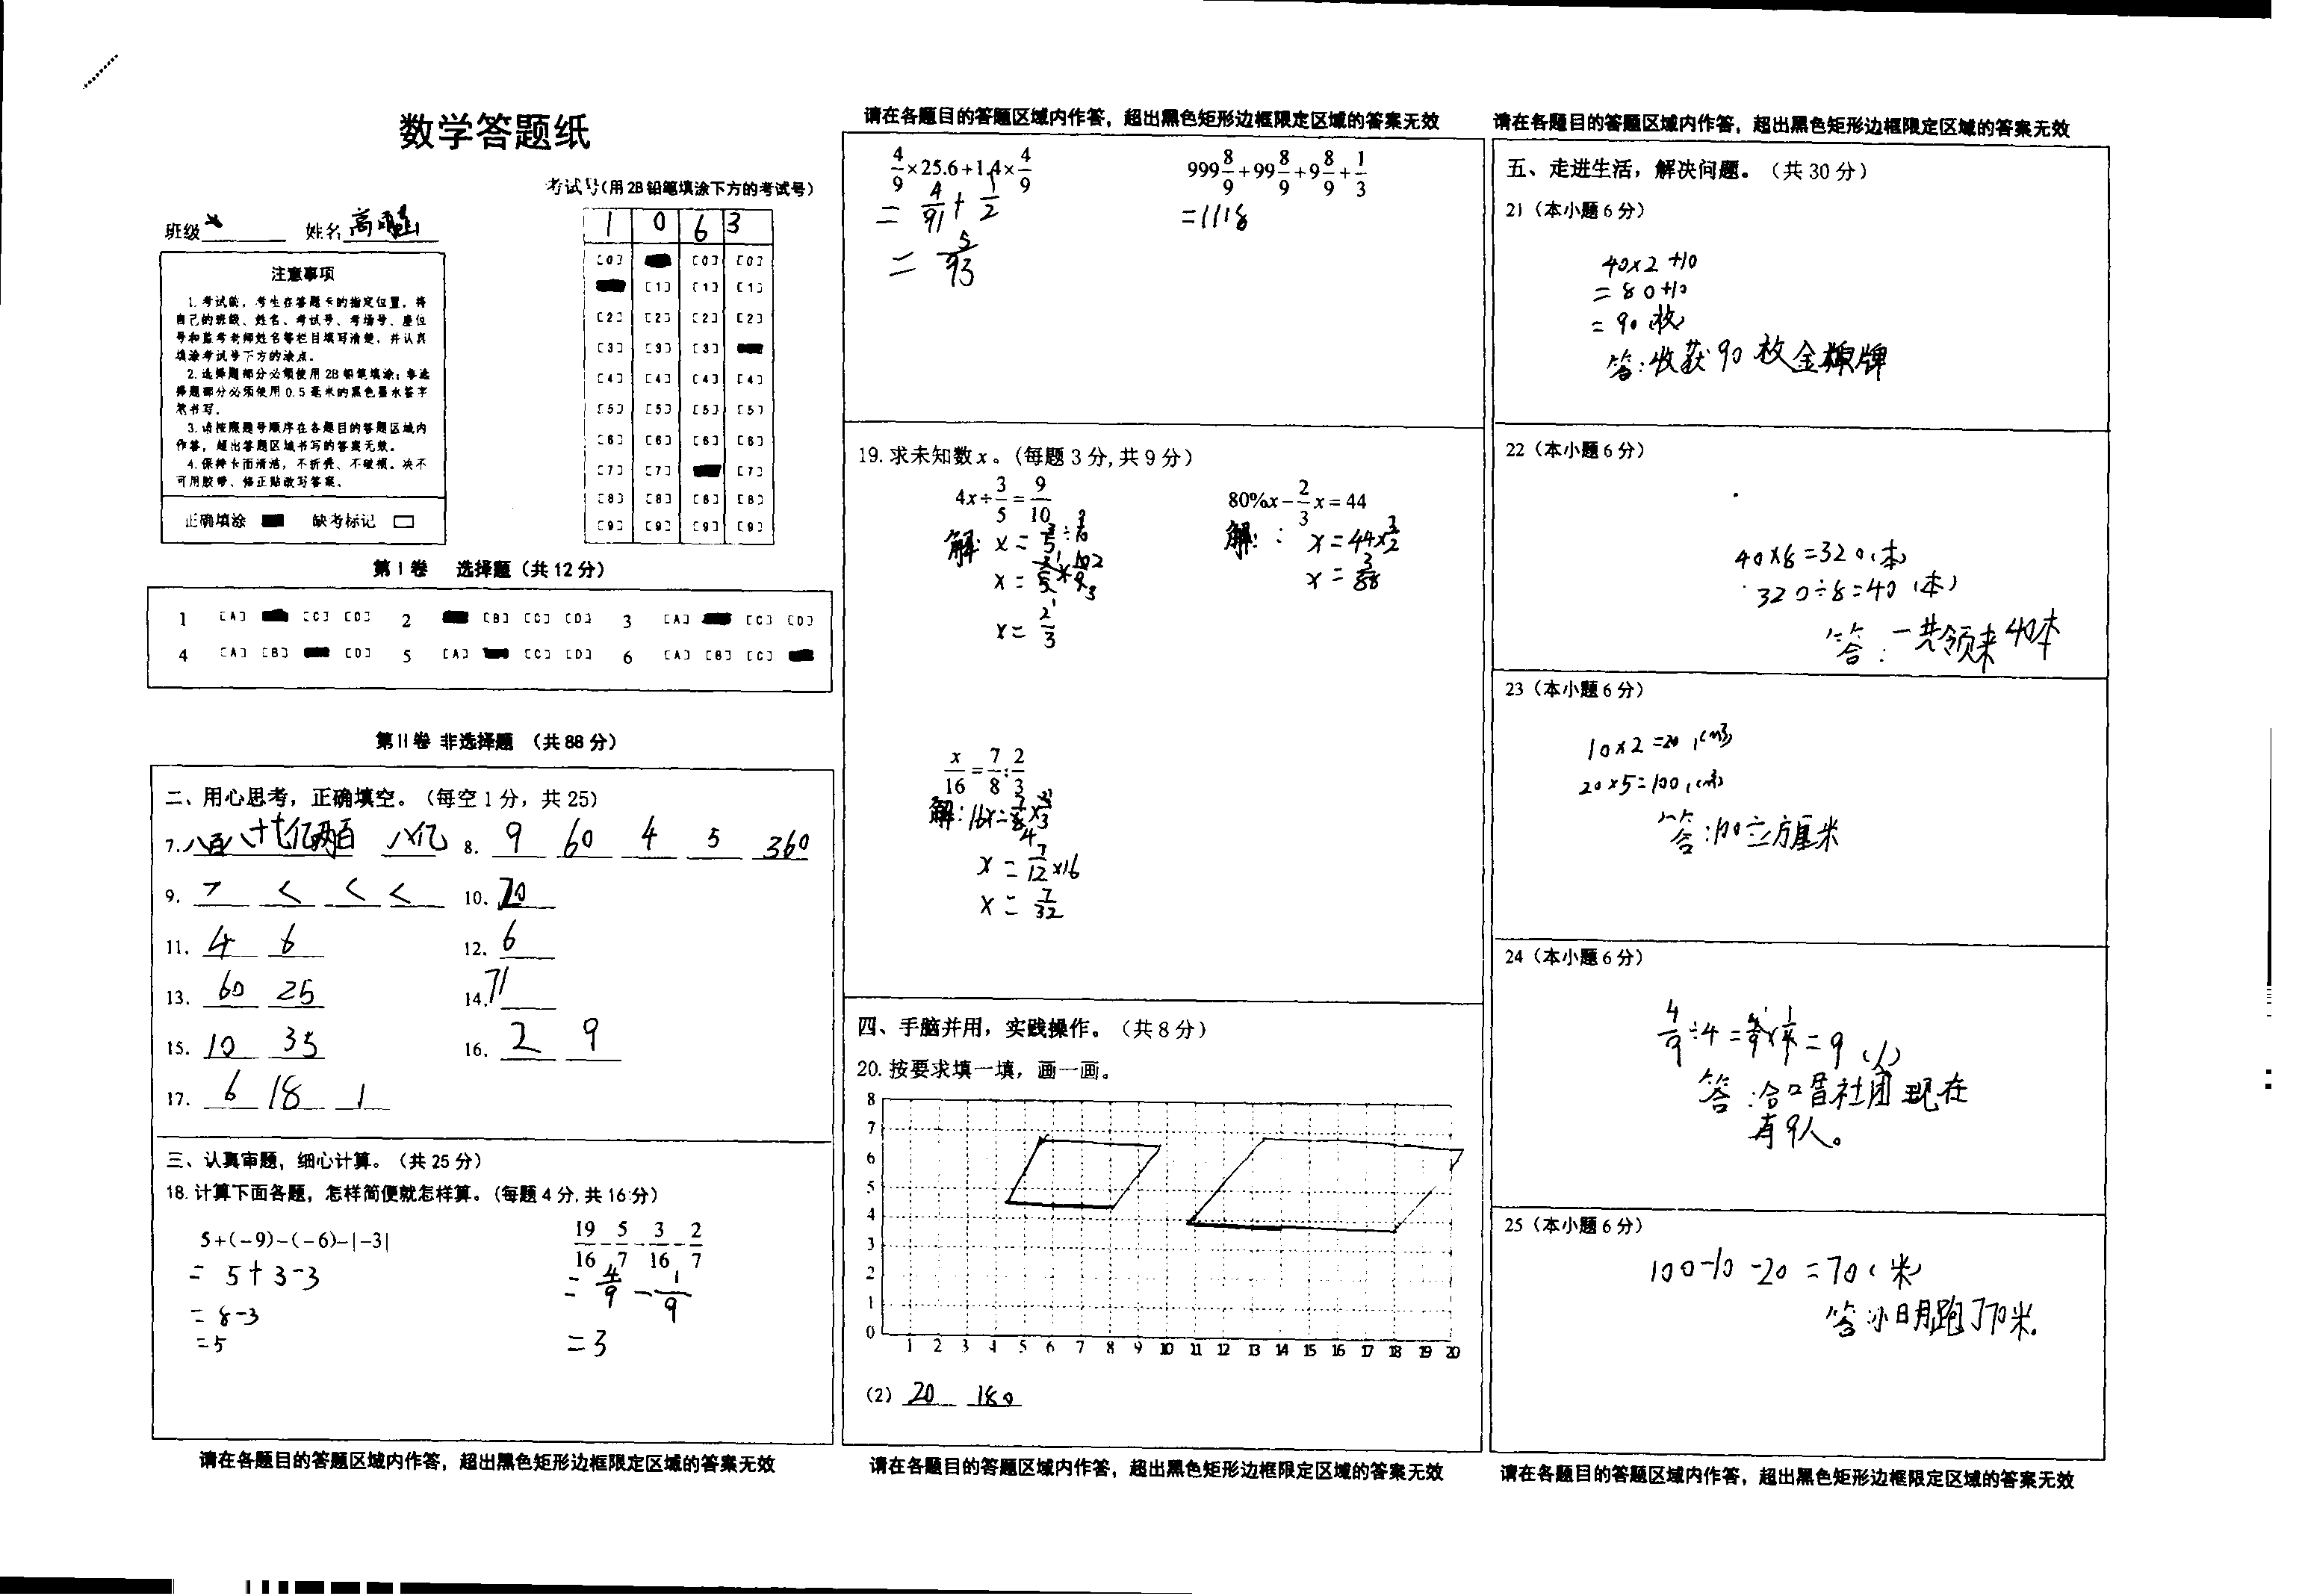 数学答题纸
考试号(用2B铅笔填涂下方的考试号)
班级 姓名 高
1 0 6 3
注意事项
1.考试前,考生在答题卡的指定位置,将
自己的班级、姓名、考试号、考场号、座位
号和监考老师姓名等栏目填写清楚,并认真
填涂考试号下方的涂点。
2.选择题部分必须使用2B铅笔填涂;非选
择题部分必须使用0.5毫米的黑色墨水签字
笔书写。
3.请按照题号顺序在各题目的答题区域内
作答,超出答题区域书写的答案无效。
4.保持卡面清洁,不折叠、不破损。决不
可用胶带、修正贴改写答案。
正确填涂 缺考标记
[0] [0] [0]
[1] [1] [1]
[2] [2] [2] [2]
[3] [3] [3]
[4] [4] [4] [4]
[5] [5] [5] [5]
[6] [6] [6] [6]
[7] [7] [7]
[8] [8] [8] [8]
[9] [9] [9] [9]
第Ⅰ卷 选择题(共12分)
1 [A] [C] [D] 2 [B] [C] [D] 3 [A] [C] [D]
4 [A] [B] [D] 5 [A] [C] [D] 6 [A] [B] [C]
第Ⅱ卷 非选择题 (共88分)
二、用心思考,正确填空。(每空1分,共25)
7. 八百八十七亿两百 八亿 8. 9 60 4 5 360
9. > < < < 10. 20
11. 4 6 12. 6
13. 60 25 14. 71
15. 10 35 16. 2 9
17. 6 18 1
三、认真审题,细心计算。(共25分)
18.计算下面各题,怎样简便就怎样算。(每题4分,共16分)
5+(-9)-(-6)-|-3| 19/16-5/7-3/16-2/7
= 5+3-3 = 4/9 - 1/9
= 8-3 = 3
=5
请在各题目的答题区域内作答,超出黑色矩形边框限定区域的答案无效
请在各题目的答题区域内作答,超出黑色矩形边框限定区域的答案无效
4/9×25.6+1.4×4/9 999 8/9+99 8/9+9 8/9+1/3
= 4/91 + 1/2 =1118
= 5/93
19.求未知数x。(每题3分,共9分)
4x÷3/5=9/10 80%x-2/3x=44
解: x=3/5÷9/10 解: x=44×3/2
x=3/5×10/9 x=3/88
x=2/3
x/16=7/8:2/3
解:16x=7/8×2/3
x=7/12×16
x=7/32
四、手脑并用,实践操作。(共8分)
20.按要求填一填,画一画。
8
7
6
5
4
3
2
1
0
1 2 3 4 5 6 7 8 9 10 11 12 13 14 15 16 17 18 19 20
(2) 20 180
请在各题目的答题区域内作答,超出黑色矩形边框限定区域的答案无效
请在各题目的答题区域内作答,超出黑色矩形边框限定区域的答案无效
五、走进生活,解决问题。(共30分)
21(本小题6分)
40×2+10
=80+10
=90(枚)
答:收获90枚金牌
22(本小题6分)
40×8=320(本)
320÷8=40(本)
答:一共领来40本
23(本小题6分)
10×2=20(m³)
20×5=100(m³)
答:100立方厘米
24(本小题6分)
4/9÷4=4/9×1/4=9(人)
答:合唱社团现在
有9人。
25(本小题6分)
100-10-20=70(米)
答:小明跑了70米.
请在各题目的答题区域内作答,超出黑色矩形边框限定区域的答案无效